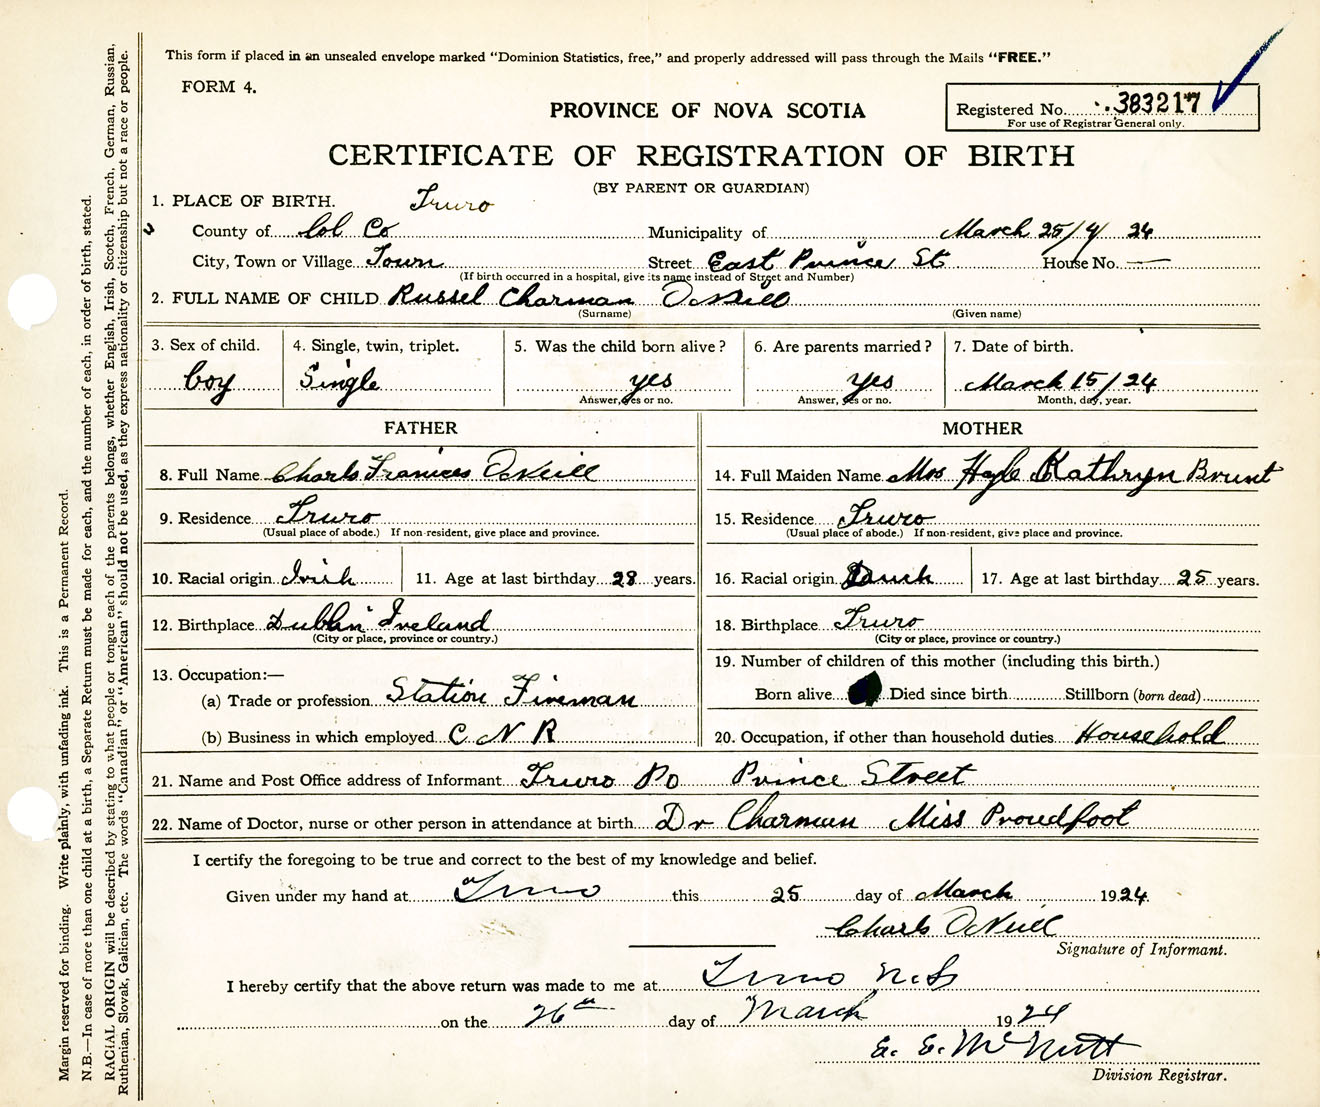 This form if placed in an unsealed envelope marked "Dominion Statistics, free," and properly addressed will pass through the Mails "FREE."
FORM 4.
PROVINCE OF NOVA SCOTIA
Registered No. 383217
For use of Registrar General only.
CERTIFICATE OF REGISTRATION OF BIRTH
(BY PARENT OR GUARDIAN)
1. PLACE OF BIRTH. Truro
County of Col Co Municipality of March 25/4 24
City, Town or Village Town Street East Prince St House No. —
(If birth occurred in a hospital, give its name instead of Street and Number)
2. FULL NAME OF CHILD Russel Charman O'Neill
(Surname) (Given name)
3. Sex of child. 4. Single, twin, triplet. 5. Was the child born alive? 6. Are parents married? 7. Date of birth.
boy Single yes yes March 15/24
Answer, yes or no. Answer, yes or no. Month, day, year.
FATHER MOTHER
8. Full Name Charls Frances O'Neill 14. Full Maiden Name Mrs Kathryn Brunt
9. Residence Truro 15. Residence Truro
(Usual place of abode.) If non-resident, give place and province. (Usual place of abode.) If non-resident, give place and province.
10. Racial origin Irish 11. Age at last birthday 28 years. 16. Racial origin 17. Age at last birthday 25 years.
12. Birthplace Dublin Ireland 18. Birthplace Truro
(City or place, province or country.) (City or place, province or country.)
13. Occupation:— 19. Number of children of this mother (including this birth.)
(a) Trade or profession Station Fireman Born alive Died since birth Stillborn (born dead)
(b) Business in which employed C N R 20. Occupation, if other than household duties Household
21. Name and Post Office address of Informant Truro PO Prince Street
22. Name of Doctor, nurse or other person in attendance at birth Dr Charman Miss Proudfoot
I certify the foregoing to be true and correct to the best of my knowledge and belief.
Given under my hand at Truro this 25 day of March 1924.
Charls O'Neill
Signature of Informant.
I hereby certify that the above return was made to me at Truro N.S.
on the 26th day of March 1924
E. E. McNutt
Division Registrar.
Margin reserved for binding. Write plainly, with unfading ink. This is a Permanent Record.
N.B.—In case of more than one child at a birth, a Separate Return must be made for each, and the number of each, in order of birth, stated.
RACIAL ORIGIN will be described by stating to what people or tongue each of the parents belongs, whether English, Irish, Scotch, French, German, Russian,
Ruthenian, Slovak, Galician, etc. The words "Canadian" or "American" should not be used, as they express nationality or citizenship but not a race or people.